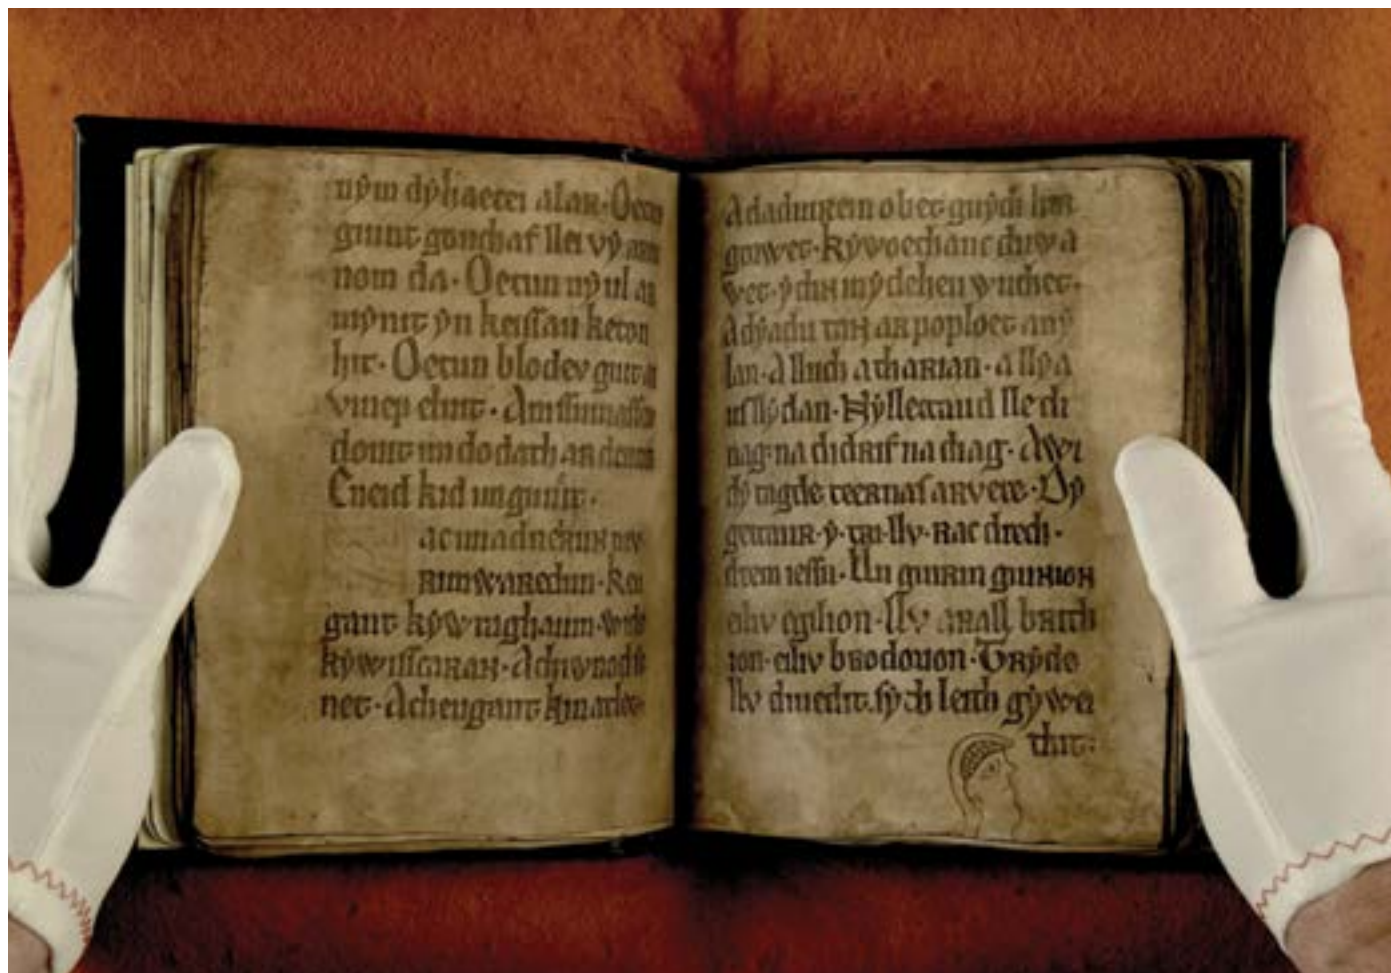 nẏm dẏhaetei alar. Oetun
gonchaf llei vẏ
nom da. Oetun nẏ ul ar
mẏnit ẏn keissau keton
hit. Oetun blodev guit ar
vinep eluit.
douit im dodath ar
Eneid kid imguinit.
ac imadneirun nev
rimwaredun. Kei
kẏwraghaun. Wrth
kẏwisscarar.
net. Acheugant kinatlet.
Adadwirein obet guẏdi hir
gorwet. Kẏwoethauc duw a
vet. ẏ dir mẏdehen wuchet.
Adẏadu tan ar poploet anẏ
lan. A lluch atharian. a llẏa
us llẏdan. Nẏ llettaud lle di
nag. na didrif na diag. Awi
dẏ tagde teernas arvere. Dẏ
gettaur. ẏ. tri. llv. Rac drech.
drem iessu. Llu guirin guirion
eiliv egilion. llv arall brith
ion. eiliv brodorion. Trẏde
llv diuedit. sẏth leith gẏwe
thit: